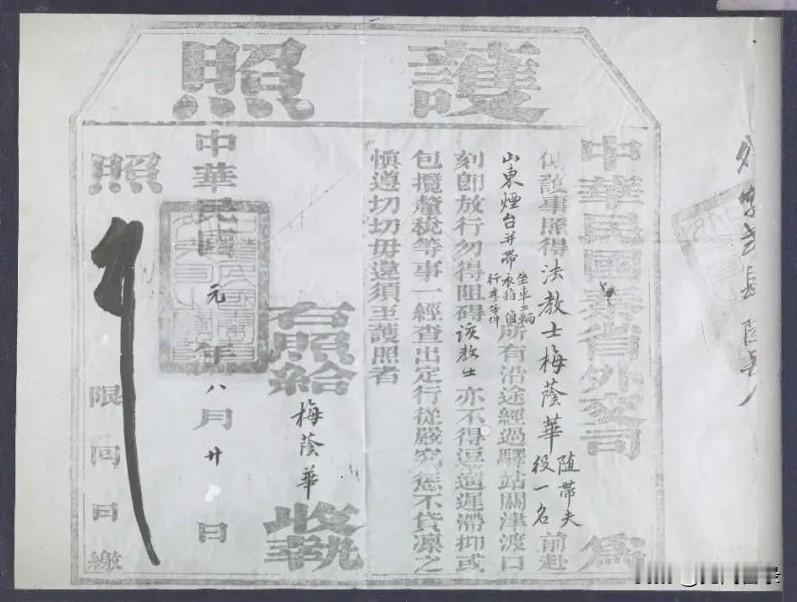 護照
中華民國秦省外交司 為
保護事照得法教士梅蔭華隨帶夫役一名前赴
山東煙台并帶坐車二輛衣箱 行李等件所有沿途經過驛站關津渡口
刻即放行勿得阻碍該教士亦不得逗遛遲滯抑或
包攬釐稅等事一經查出定行從嚴究惩不貸凛之
慎遵切切毋違須至護照者
右照給 梅蔭華 收執
中華民國元年八月廿日
照 限 回日繳